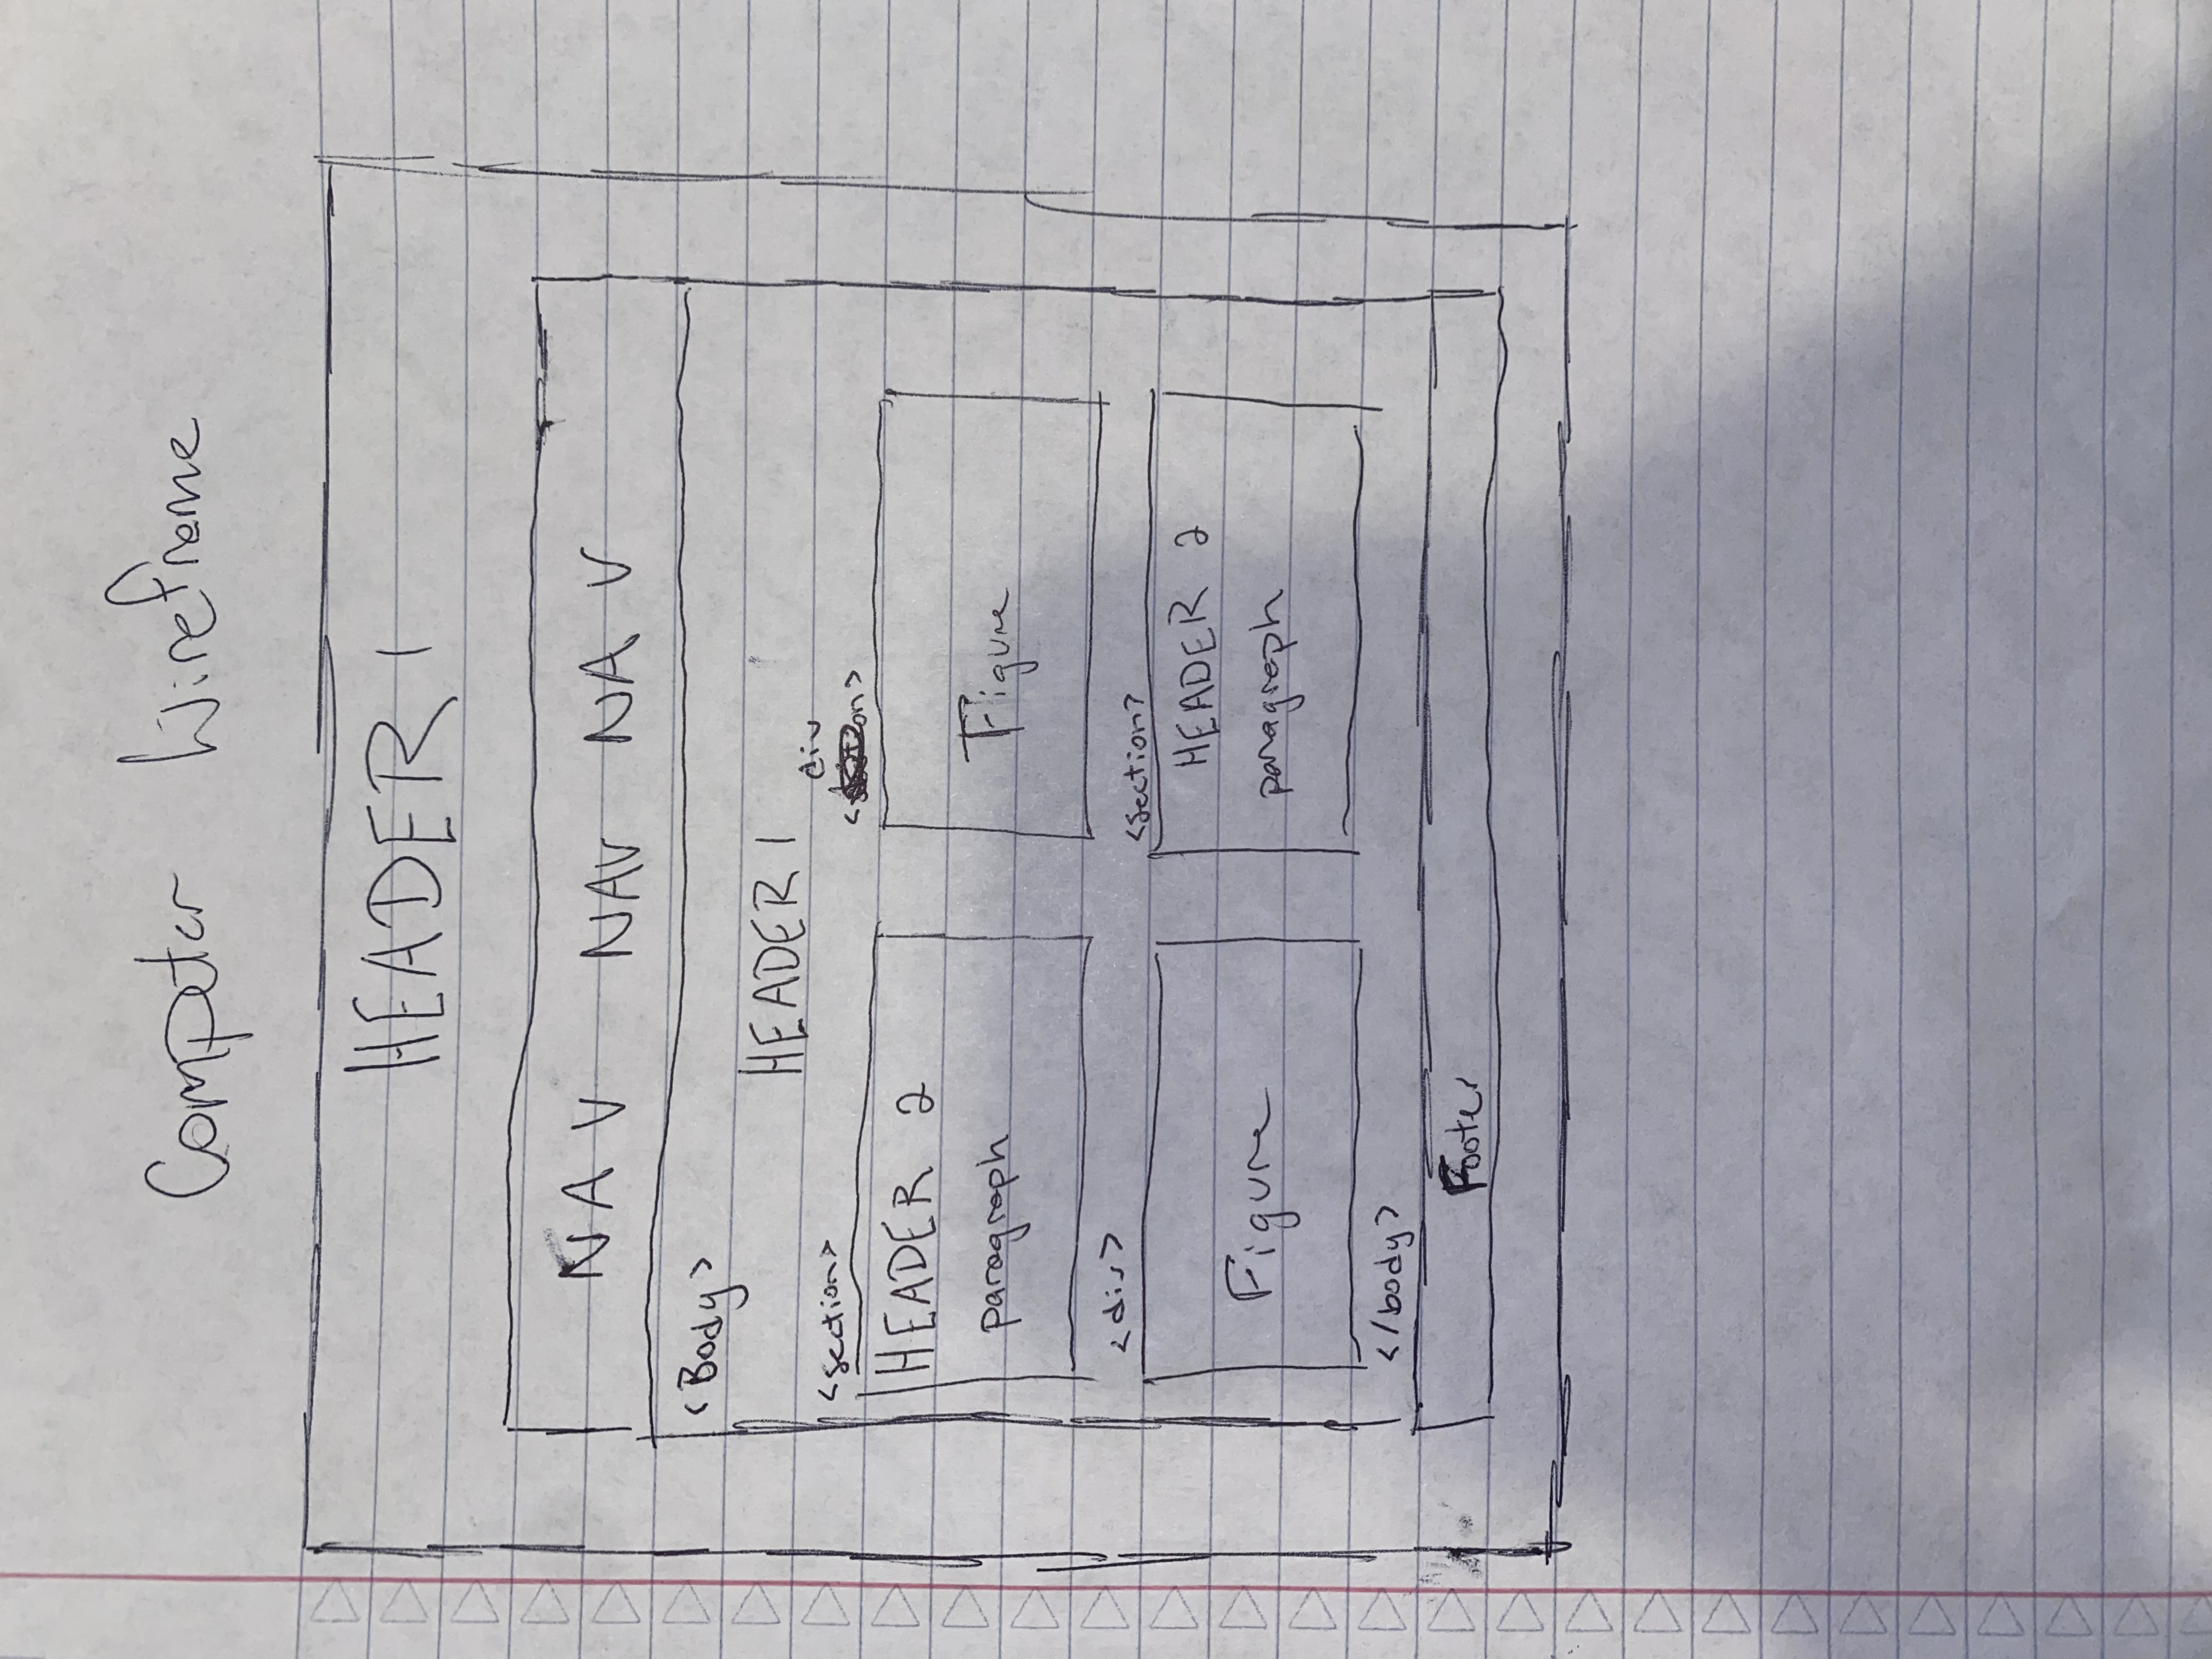 Computer Wireframe
HEADER 1
NAV NAV NAV
<Body>
HEADER 1
<section>
div
HEADER 2
paragraph
Figure
<div>
<section>
Figure
HEADER 2
paragraph
</body>
Footer